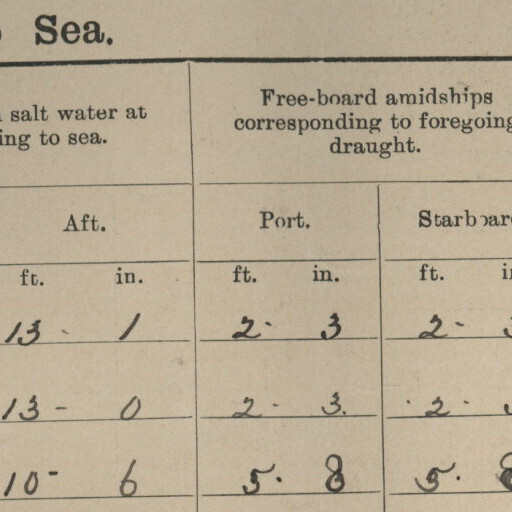 Sea.
salt water at
ing to sea.
Free-board amidships
corresponding to foregoing
draught.
Aft. Port. Starboar
ft. in. ft. in. ft.
13 - 1 2 - 3 2 -
13 - 0 2 - 3. 2 -
10 - 6 5. 8 5. 8